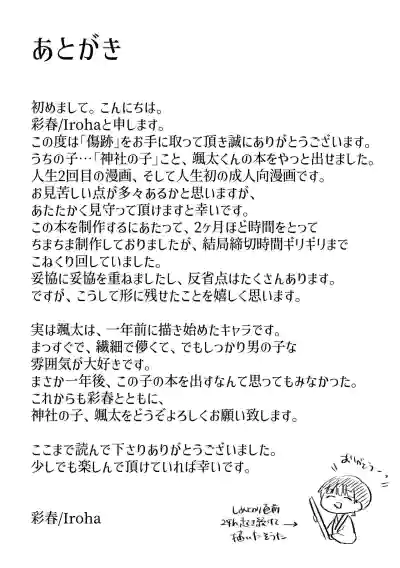 あとがき
初めまして。こんにちは。
彩春/Irohaと申します。
この度は「傷跡」をお手に取って頂き誠にありがとうございます。
うちの子…「神社の子」こと、颯太くんの本をやっと出せました。
人生2回目の漫画、そして人生初の成人向漫画です。
お見苦しい点が多々あるかと思いますが、
あたたかく見守って頂けますと幸いです。
この本を制作するにあたって、2ヶ月ほど時間をとって
ちまちま制作しておりましたが、結局締切時間ギリギリまで
こねくり回していました。
妥協に妥協を重ねましたし、反省点はたくさんあります。
ですが、こうして形に残せたことを嬉しく思います。
実は颯太は、一年前に描き始めたキャラです。
まっすぐで、繊細で儚くて、でもしっかり男の子な
雰囲気が大好きです。
まさか一年後、この子の本を出すなんて思ってもみなかった。
これからも彩春とともに、
神社の子、颯太をどうぞよろしくお願い致します。
ここまで読んで下さりありがとうございました。
少しでも楽しんで頂けていれば幸いです。
ありがとう
彩春/Iroha
しめきり直前
描いたそうた